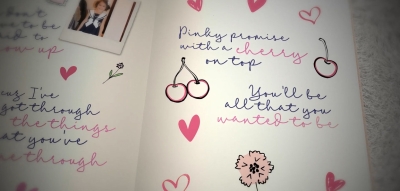 don't
to be
to
ow up
I've
got through
the things
at you've
me through
Pinky promise
with a cherry
on top
You'll be
all that you
wanted to be